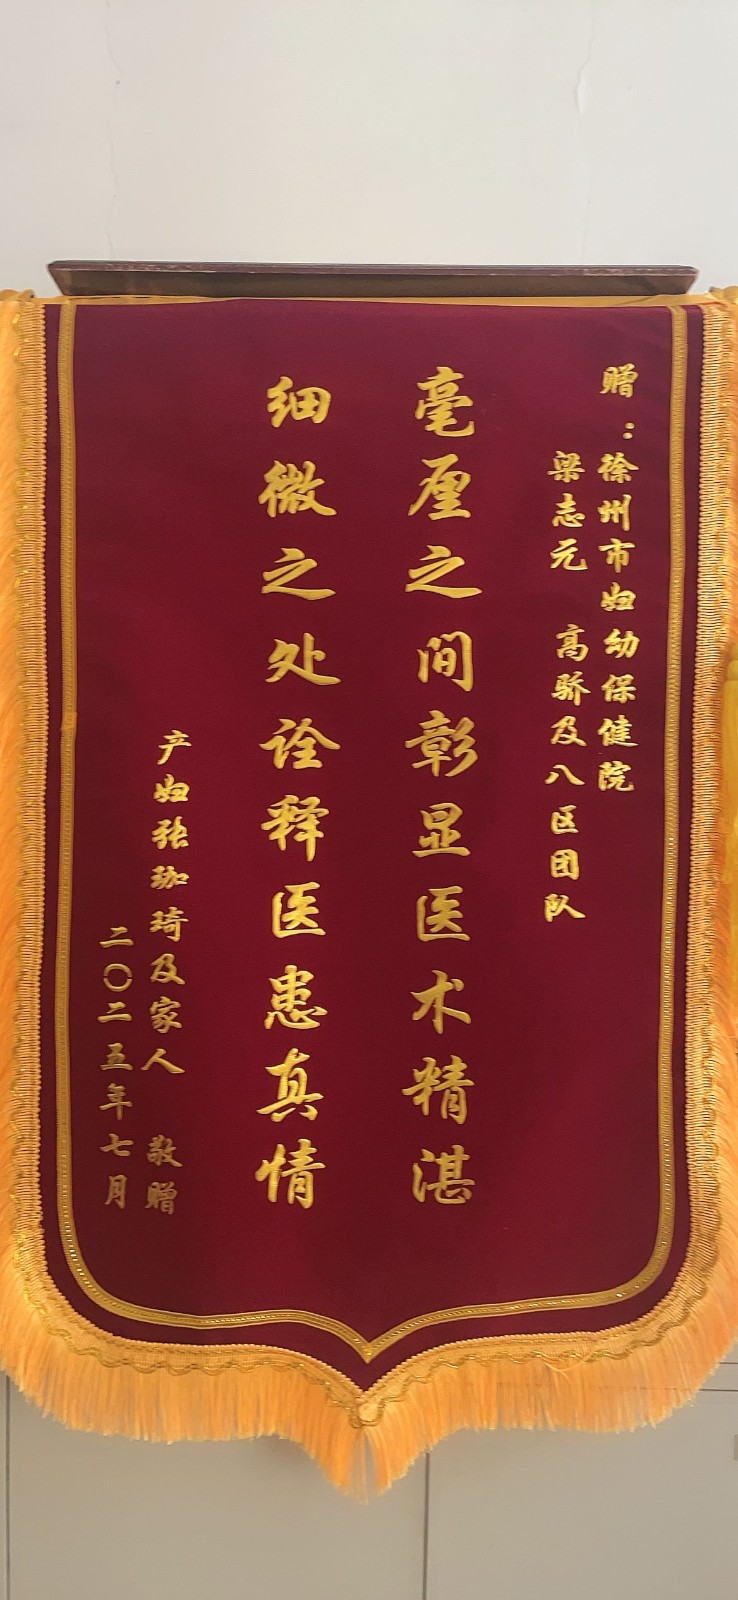 赠：徐州市妇幼保健院
梁志元 高骄及八区团队
毫厘之间彰显医术精湛
细微之处诠释医患真情
产妇张珈琦及家人 敬赠
二〇二五年七月